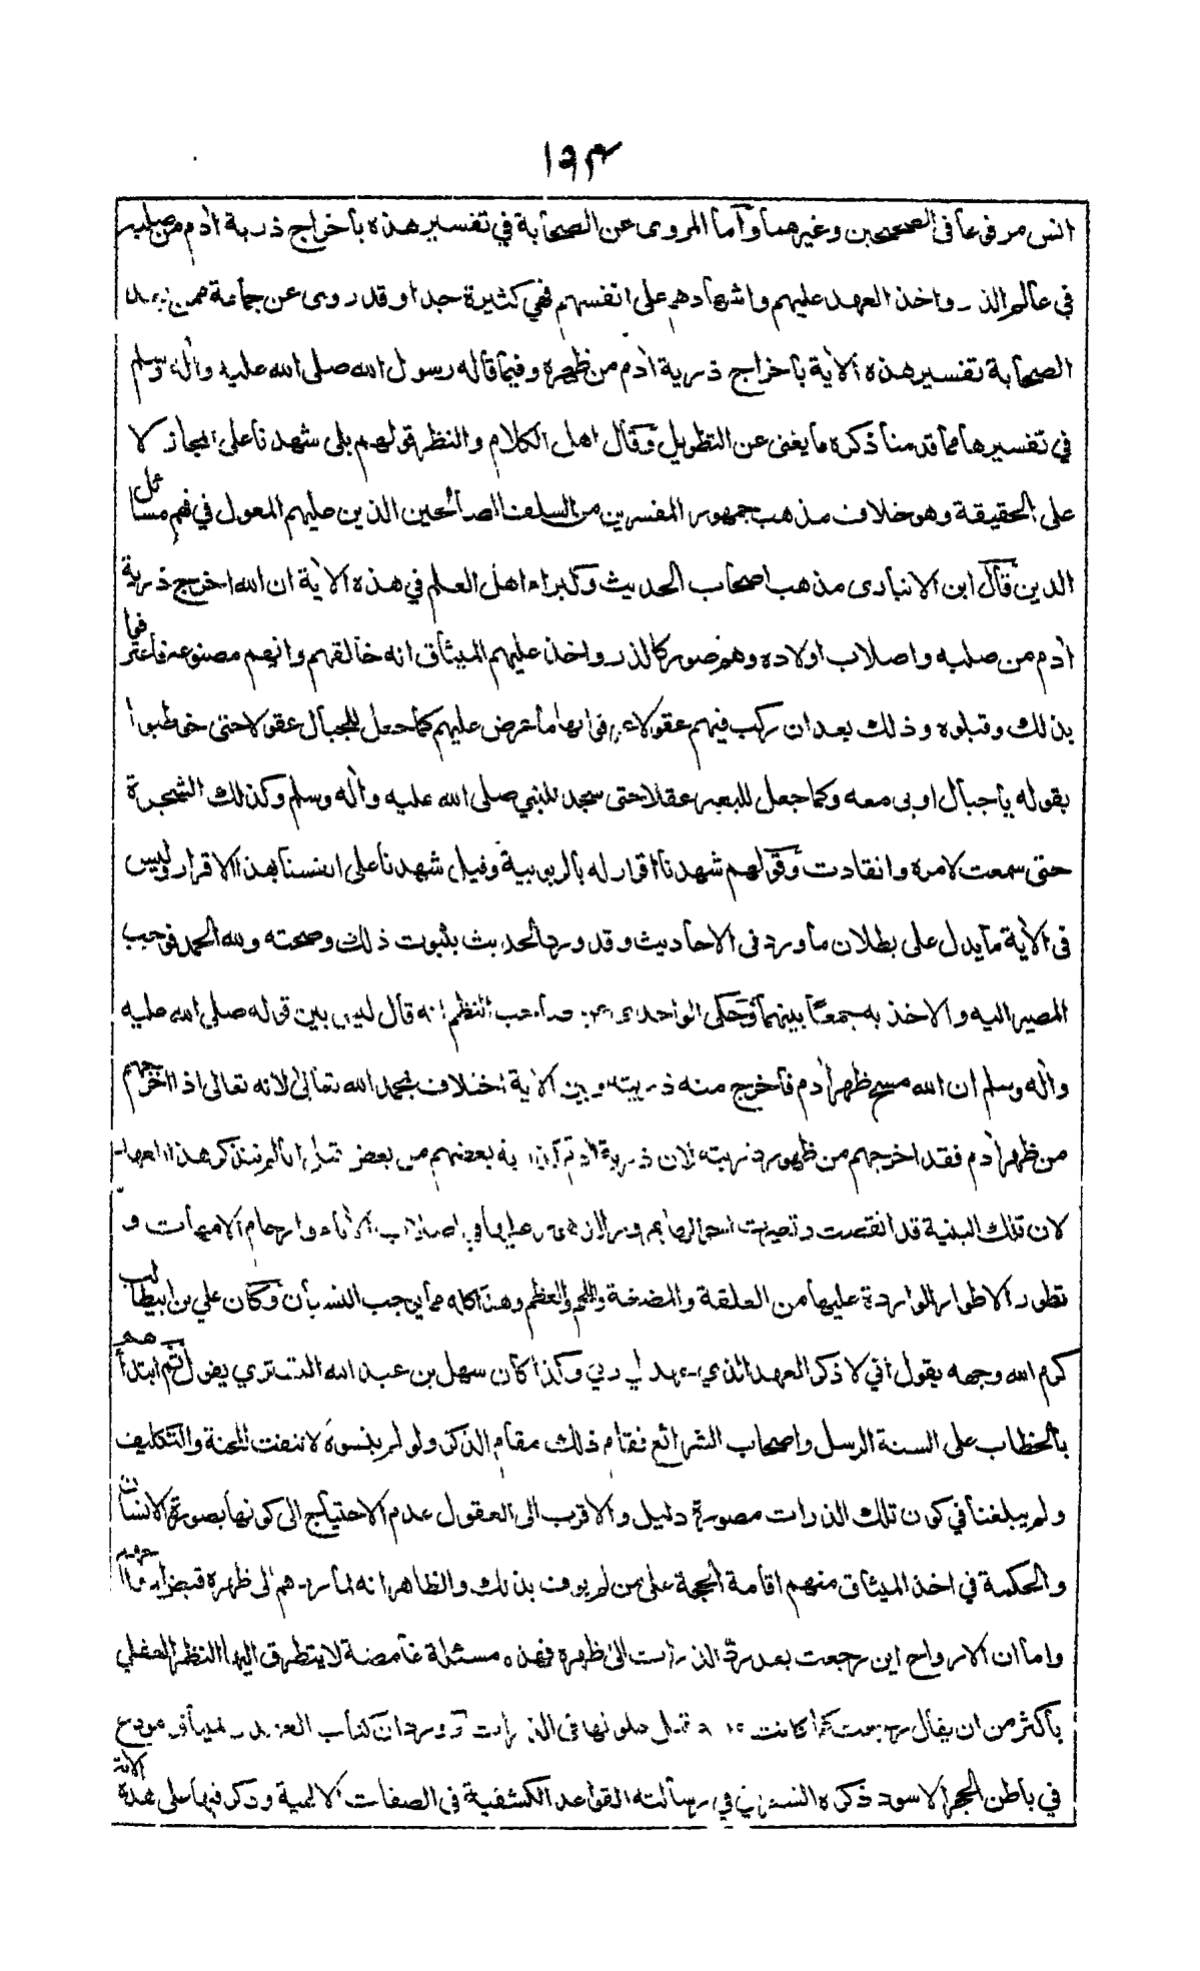 ١٦٣
انس مرفوعا فى الصحيحين وغيرهما وأما المروى عن الصحابة في تفسير هذه باخراج ذرية ادم من صلبه
في عالم الذر واخذ العهد عليهم واشهادهم على انفسهم فهي كثيرة جدا وقد روى عن جماعة ممن بعد
الصحابة تفسير هذه الاية باخراج ذرية ادم من ظهره وفيما قاله رسول الله صلى الله عليه واله وسلم
في تفسيرها مما قدمنا ذكره ما يغني عن التطويل وقال اهل الكلام والنظر قولهم بلى شهدنا على المجاز لا
على الحقيقة وهو خلاف مذهب جمهور المفسرين من السلف الصالحين الذين عليهم المعول في فهم مسائل
الدين قال ابن الانبارى مذهب اصحاب الحديث وكبراء اهل العلم في هذه الاية ان الله اخرج ذرية
ادم من صلبه واصلاب اولاده وهم صور كالذر واخذ عليهم الميثاق انه خالقهم وانهم مصنوعه فاعترفوا
بذلك وقبلوه وذلك بعد ان ركب فيهم عقولا عرفوا بها ما عرض عليهم كما جعل للجبال عقولا حتى خوطبوا
بقوله يا جبال اوبى معه وكما جعل للبعير عقلا حتى سجد للنبي صلى الله عليه واله وسلم وكذلك الشجرة
حتى سمعت لامره وانقادت وقولهم شهدنا اقرار له بالربوبية وقيل شهدنا على انفسنا بهذا الاقرار وليس
فى الاية ما يدل على بطلان ما ورد فى الاحاديث وقد ورد الحديث بثبوت ذلك وصحته ولله الحمد فوجب
المصير اليه والاخذ به جمعا بينهما وحكى الواحدى عن صاحب النظم انه قال ليس بين قوله صلى الله عليه
واله وسلم ان الله مسح ظهر ادم فاخرج منه ذريته وبين الاية اختلاف بحمد الله تعالى لانه تعالى اذا اخرجهم
من ظهر ادم فقد اخرجهم من ظهور ذريته لان ذرية ادم بعضهم من بعض هذا العهد
لان تلك البنية قد انقضت وتغيرت الاباء وارحام الامهات و
تطور الاطوار الواردة عليها من العلقة والمضغة واللحم والعظم وهذا كله مما يوجب النسيان وكان علي بن ابيطالب
كرم الله وجهه يقول اني لاذكر العهد الذي عهد الي ربي وكذا كان سهل بن عبد الله التستري يقول ثم ابتدأهم
بالخطاب على السنة الرسل واصحاب الشرائع فقام ذلك مقام الذكر ولو لم ينسوه لانتفت المحنة والتكليف
ولم يبلغنا في كون تلك الذرات مصورة دليل والاقرب الى العقول عدم الاحتياج الى كونها بصورة الانسان
والحكمة في اخذ الميثاق منهم اقامة الحجة على من لم يوف بذلك والظاهر انه لما ردهم الى ظهره قبض ارواحهم
واما ان الارواح اين رجعت بعد رد الذرات الى ظهره فهذه مسئلة غامضة لا يتطرق اليها النظر العقلي
باكثر من ان يقال رجعت كما كانت قبل حلولها فى الذرات وورد ان كتاب العهد والميثاق مودع
في باطن الحجر الاسود ذكره الشعراني في رسالته القواعد الكشفية فى الصفات الالهية وذكر فيها على هذه الاية